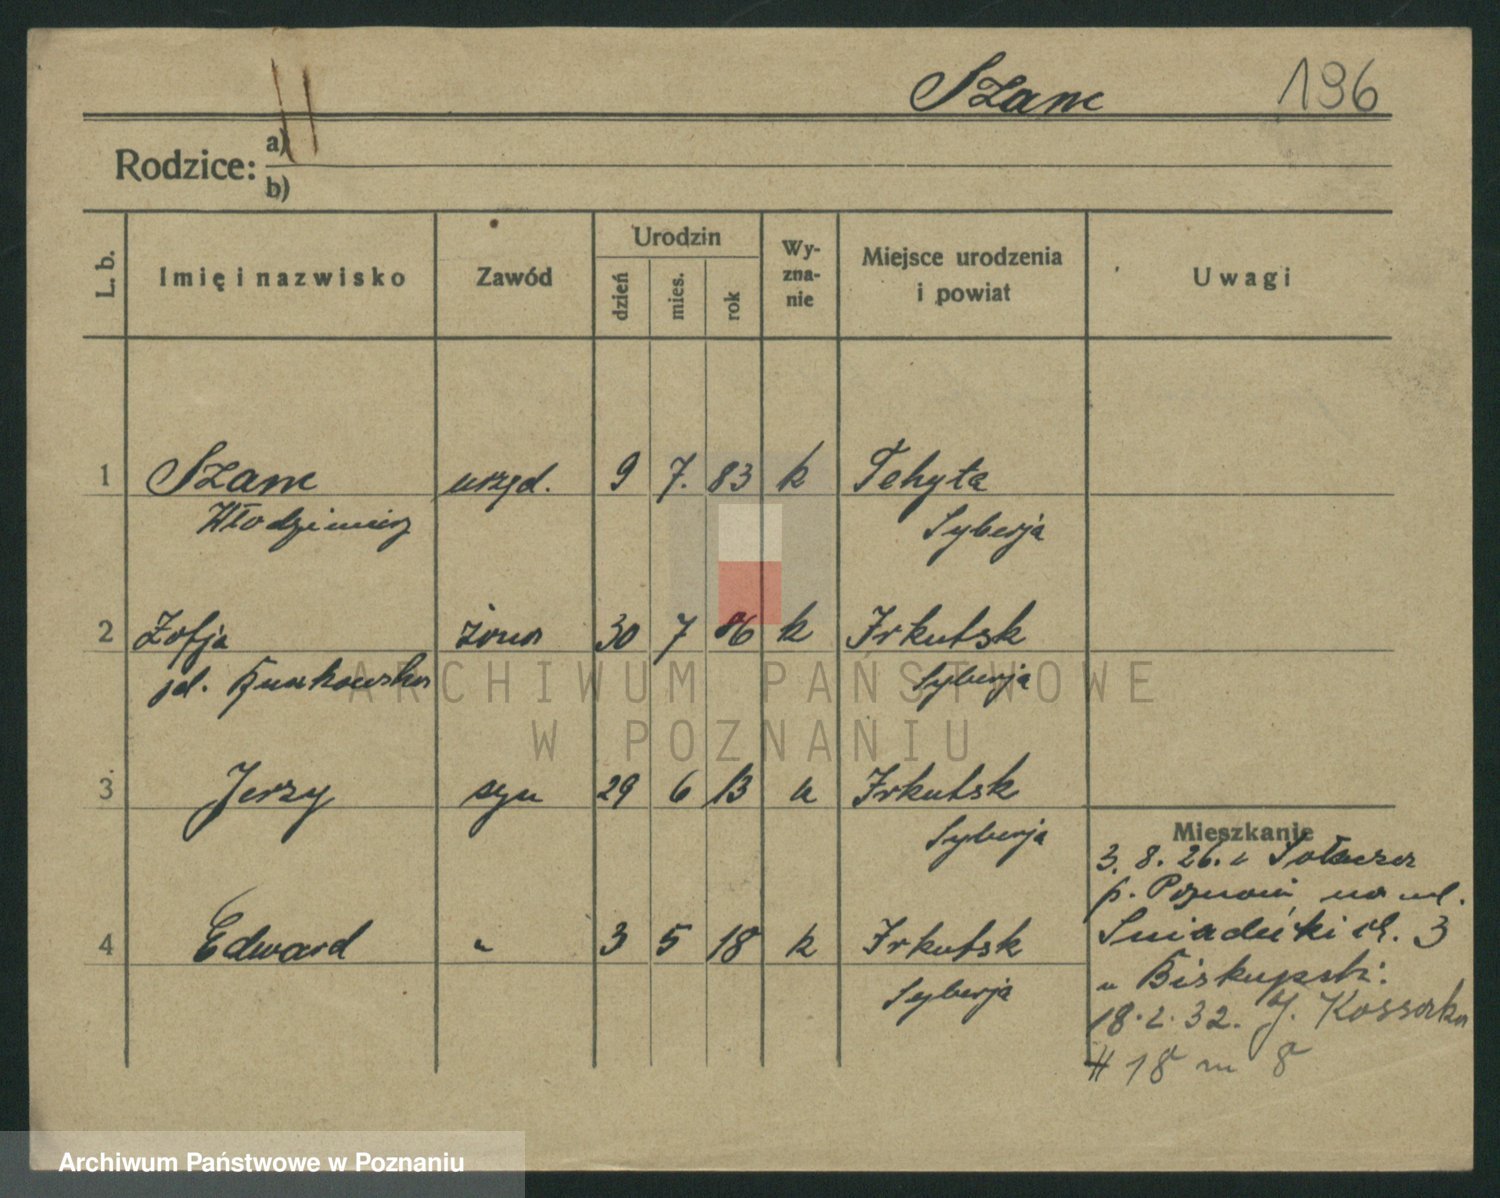 Szanc 196
Rodzice: a)
b)
L. b. Imię i nazwisko Zawód Urodzin dzień mies. rok Wy-zna-nie Miejsce urodzenia i powiat Uwagi
1 Szanc urzęd. 9 7. 83 k Tehyta
Włodzimierz Syberja
2 Zofja żona 30 7 86 k Irkutsk
zd. Syberja
3 Jerzy syn 29 6 13 k Irkutsk
Syberja
Mieszkanie
3. 8. 26. z Sołacza
p. Poznań na ul.
4 Edward " 3 5 18 k Irkutsk
Syberja
Śniadeckich. 3
u Biskupski.
18. 2. 32. J. Kossaka
# 18 m 8
ARCHIWUM PAŃSTWOWE
W POZNANIU
Archiwum Państwowe w Poznaniu